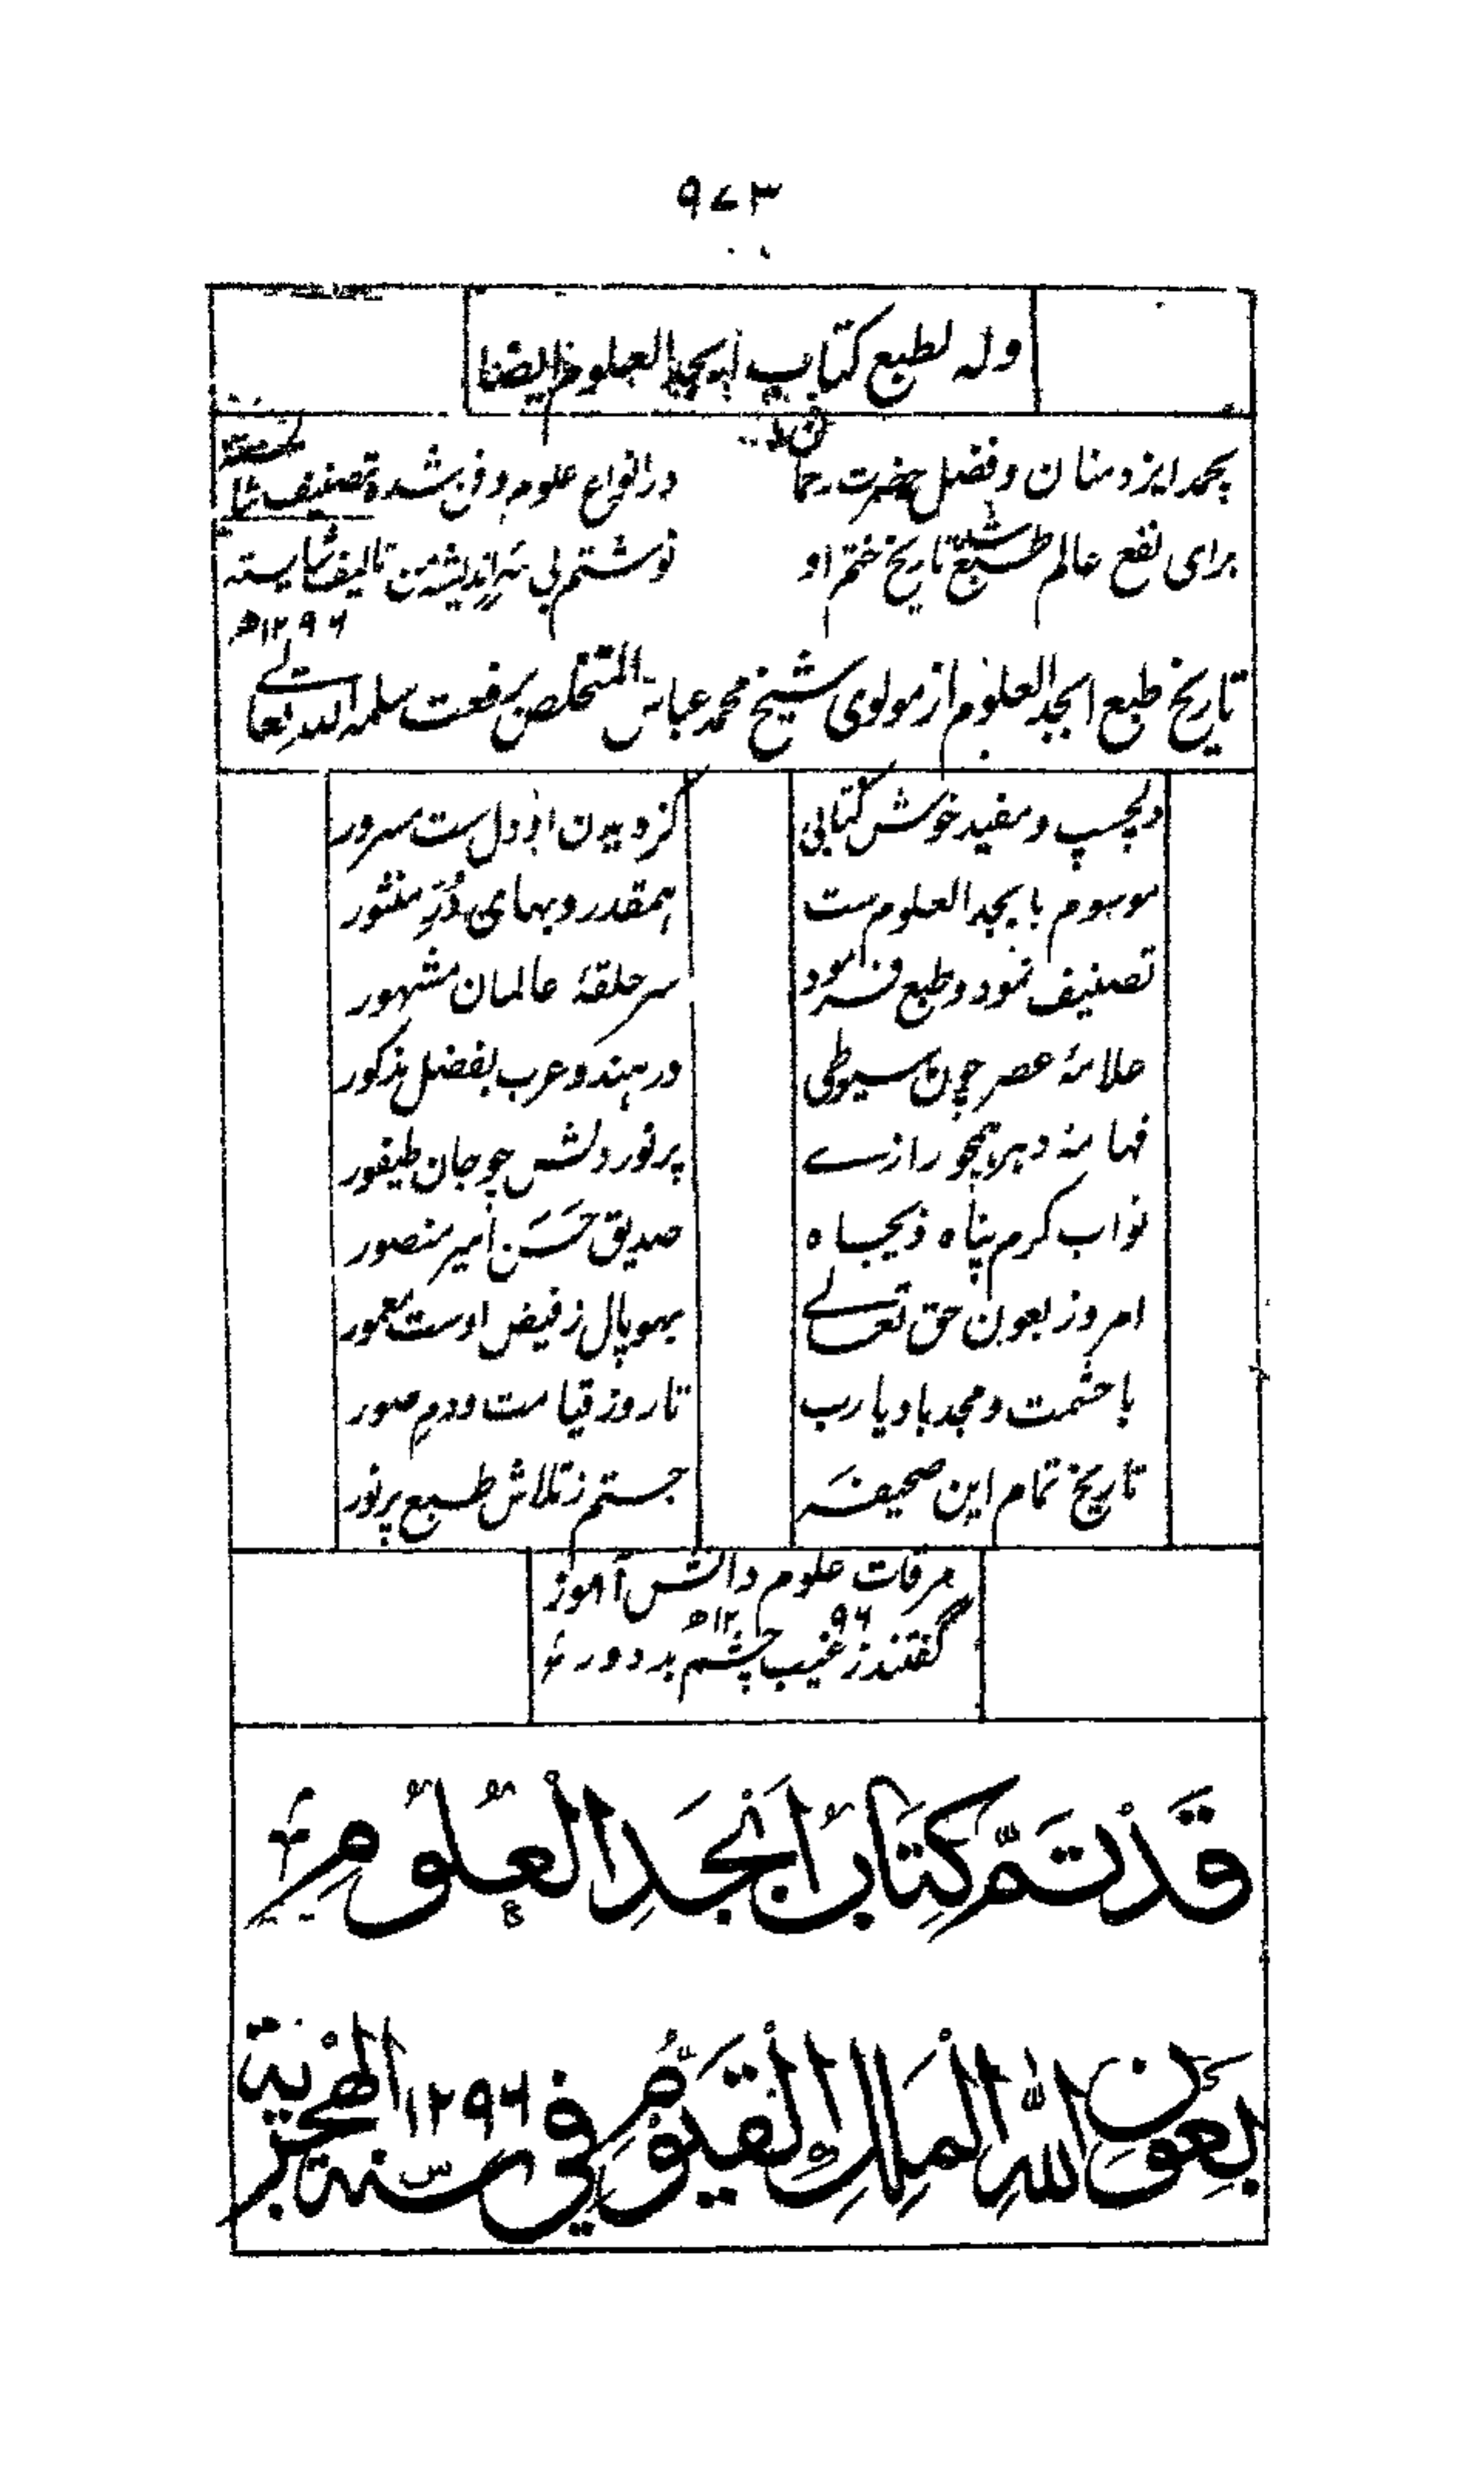 ۹۷۳
وله لطبع كتاب ابجد العلوم ايضا
بحمد ايزد منان و فضل حضرت رحمان در انواع علوم و فن شده تصنيف
برای نفع عالم طبع شد تاريخ ختم او نوشتم بی سر انديشه من تاليف شايسته
۱۲۹۶ه
تاريخ طبع ابجد العلوم از مولوی شيخ محمد عباس المتخلص برفعت سلمه الله تعالے
دلچسپ و مفيد خوش كتابی كز ديدن او دل ست مسرور
موسوم بابجد العلوم ست همقدر و بهای دُرِّ منثور
تصنيف نمود و طبع فرمود سر حلقهٔ عالمان مشهور
علامهٔ عصر چون سيوطی در هند و عرب بفضل مذكور
فهامهٔ دهر همچو رازے پر نور دلش چو جان طيفور
نواب كرم پناه ذيجاه صديق حَسَن امير منصور
امروز بعون حق تعالے بهوپال ز فيض اوست معمور
با حشمت و مجد باد يا رب تا روز قيامت و دم صور
تاريخ تمام اين صحيفه جستم ز تلاش طبع پر نور
مرقات علوم دانش آموز
۱۲۹۶ه
گفتند ز غيب چشم بد دور
قَدْ تَمَّ كِتَابُ اَبْجَدِ الْعُلُوْمِ
بِعَوْنِ اللّٰهِ الْمَلِكِ الْقَيُّوْمِ فِي سنة ۱۲۹۶ الهِجْرِيّة